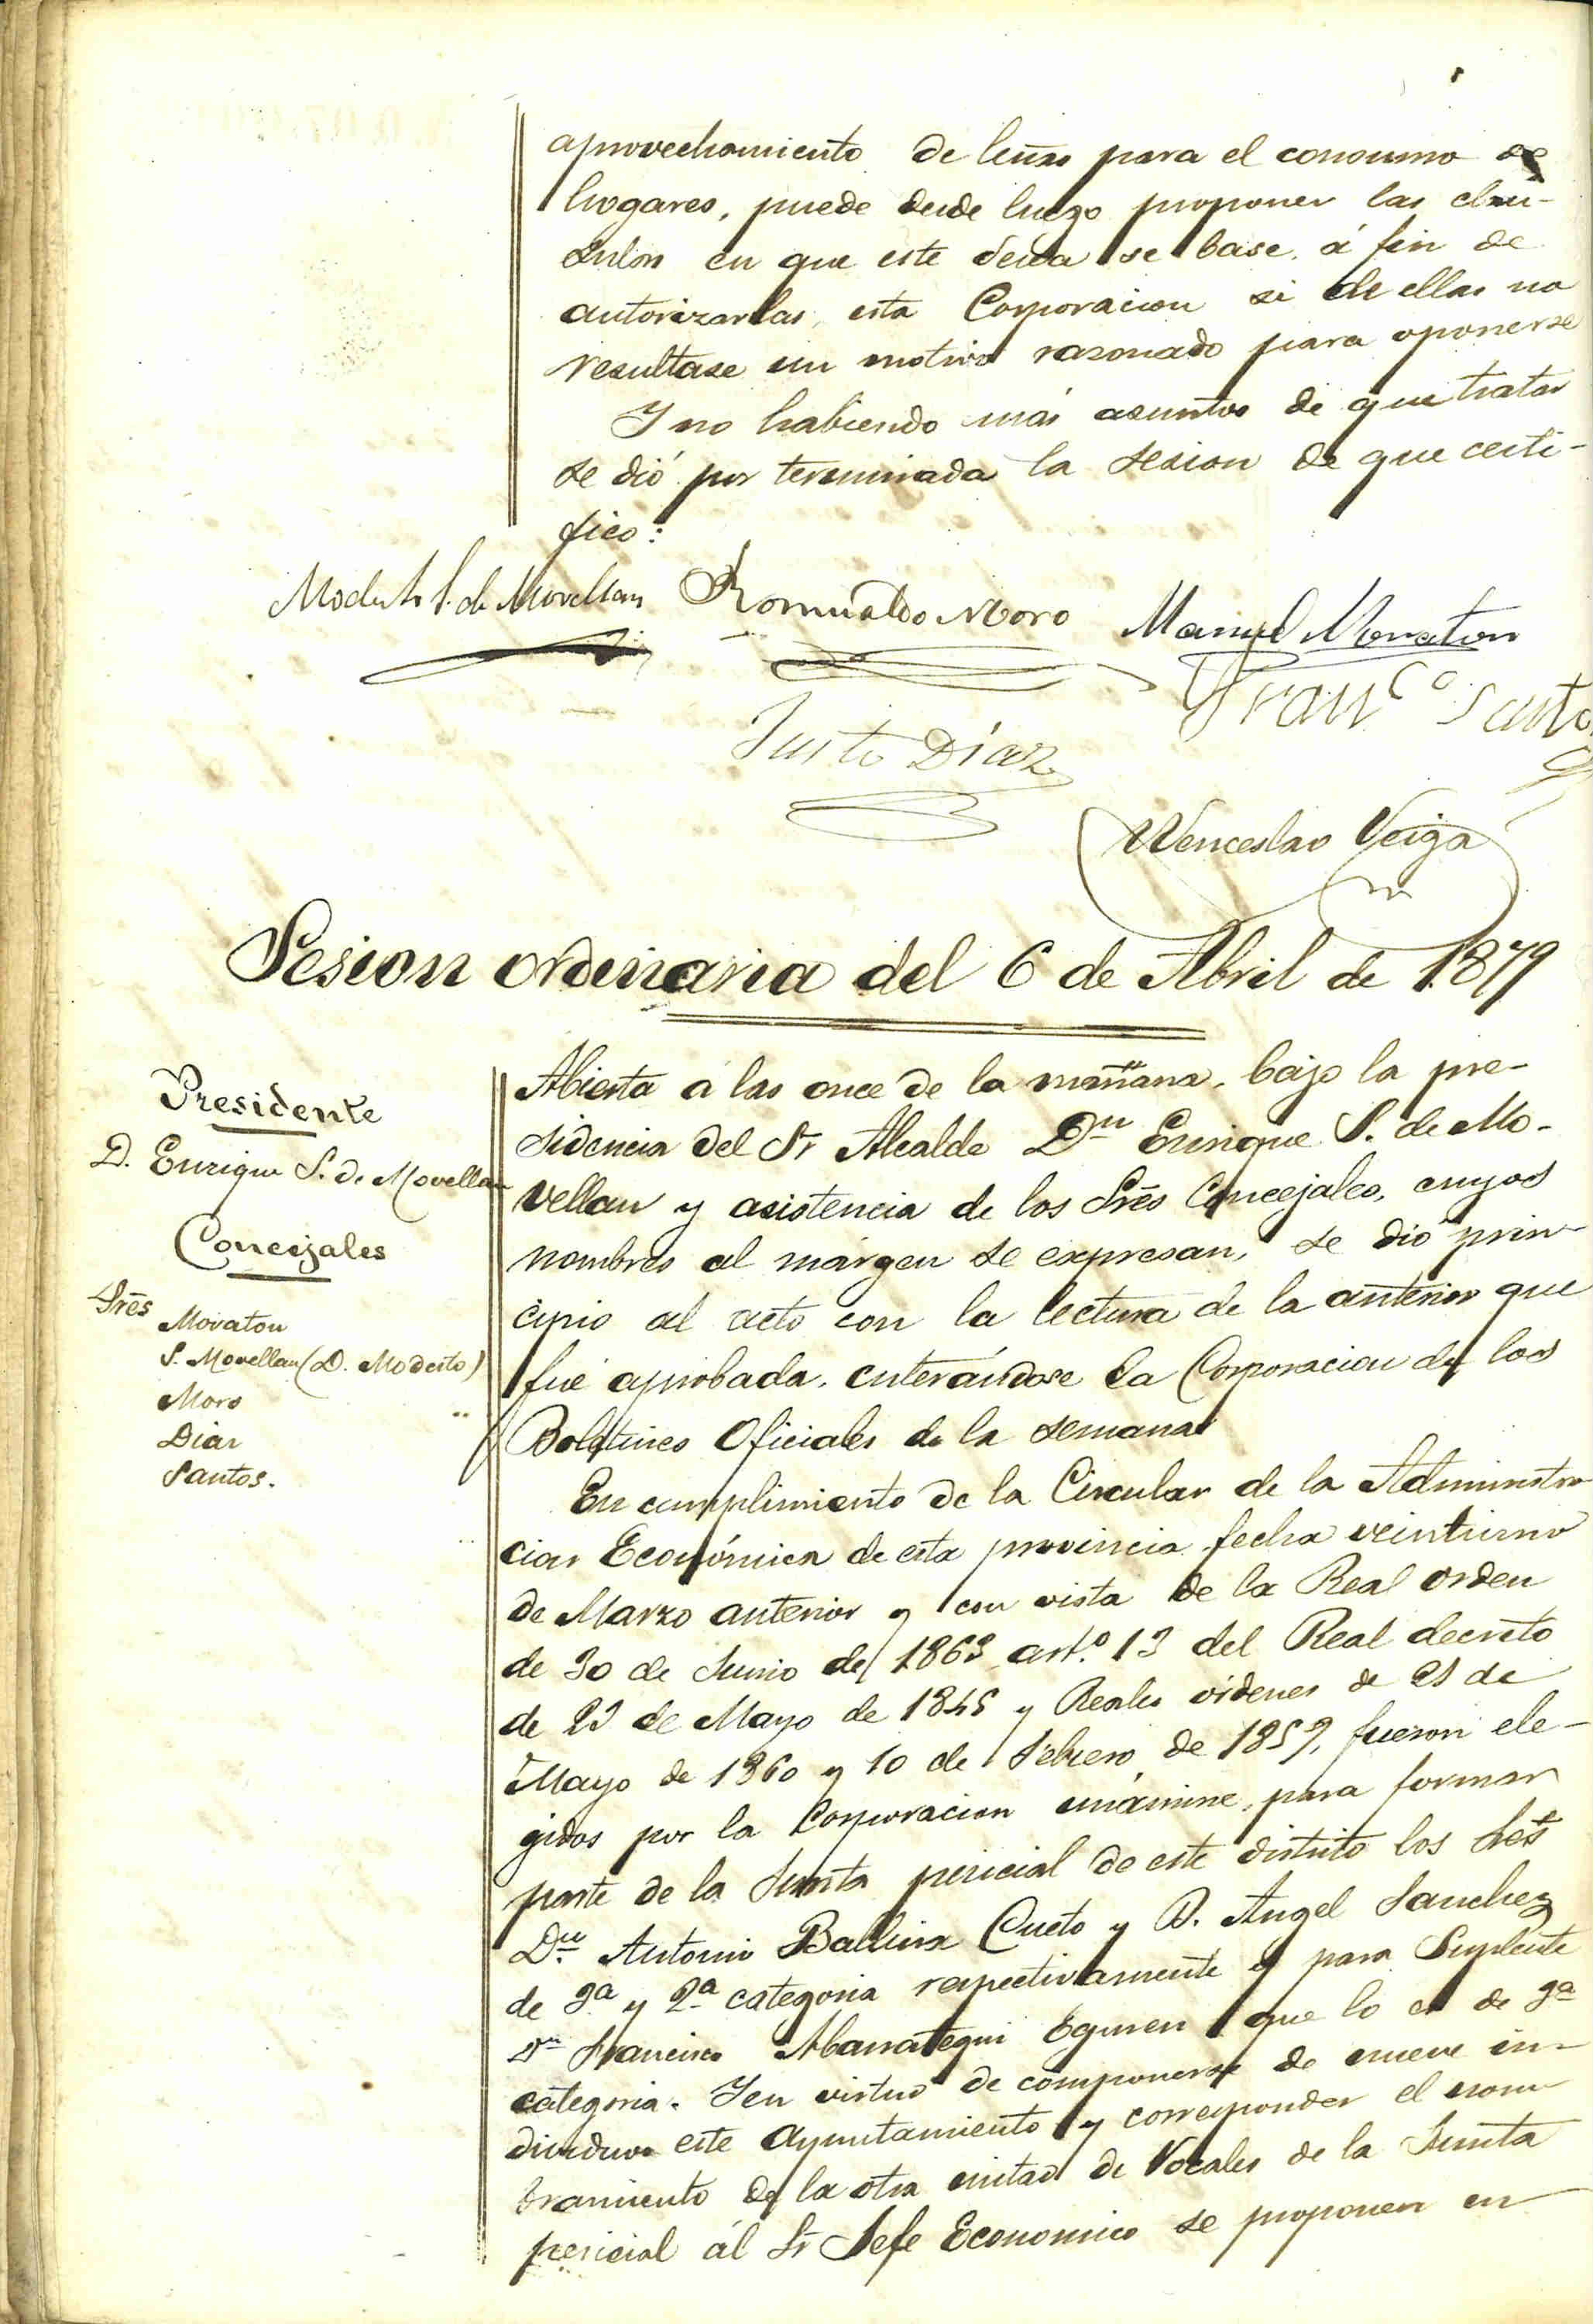 aprovechamiento de leñas para el consumo de
hogares, puede desde luego proponer las cláu-
sulas en que este deba se base, á fin de
autorizarlas, esta Corporacion si de ellas no
resultase un motivo razonado para oponerse
Y no habiendo más asuntos de que tratar
se dió por terminada la sesion de que certi-
fico:
Modesto S. de Movellan Romualdo Moro Manuel Moraton
Franco Santos
Justo Diaz
Wenceslao Veiga
Sesion ordinaria del 6 de Abril de 1879
Presidente
D. Enrique S. de Movellan
Concejales
Sres
Moraton
S. Movellan (D. Modesto)
Moro
Diaz
Santos.
Abierta á las once de la mañana, bajo la pre-
sidencia del Sr Alcalde Dn Enrique S. de Mo-
vellan y asistencia de los Sres Concejales, cuyos
nombres al márgen se expresan, se dió prin-
cipio al acto con la lectura de la anterior que
fué aprobada, enterándose la Corporacion de los
Boletines Oficiales de la semana
En cumplimiento de la Circular de la Administra
cion Económica de esta provincia fecha veintiuno
de Marzo anterior y con vista de la Real orden
de 30 de Junio de art.º 13 del Real decreto
de 23 de Mayo de 1845 y Reales órdenes de
Mayo de 1860 y 10 de Febrero de fueron ele-
gidos por la Corporacion unánime, para formar
parte de la Junta pericial de este distrito los Sres
Dn Antonio Cueto y D. Angel Sanchez
de y 2ª categoria respectivamente y para Suplente
Dn Francisco que lo es de
categoria. Y en virtud de componerse de nueve in-
dividuos este Ayuntamiento y corresponder el nom
bramiento de la otra mitad de Vocales de la Junta
pericial ál Sr Jefe Economico se proponen en